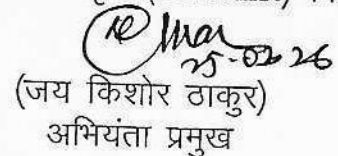 25-02-26
(जय किशोर ठाकुर)
अभियंता प्रमुख